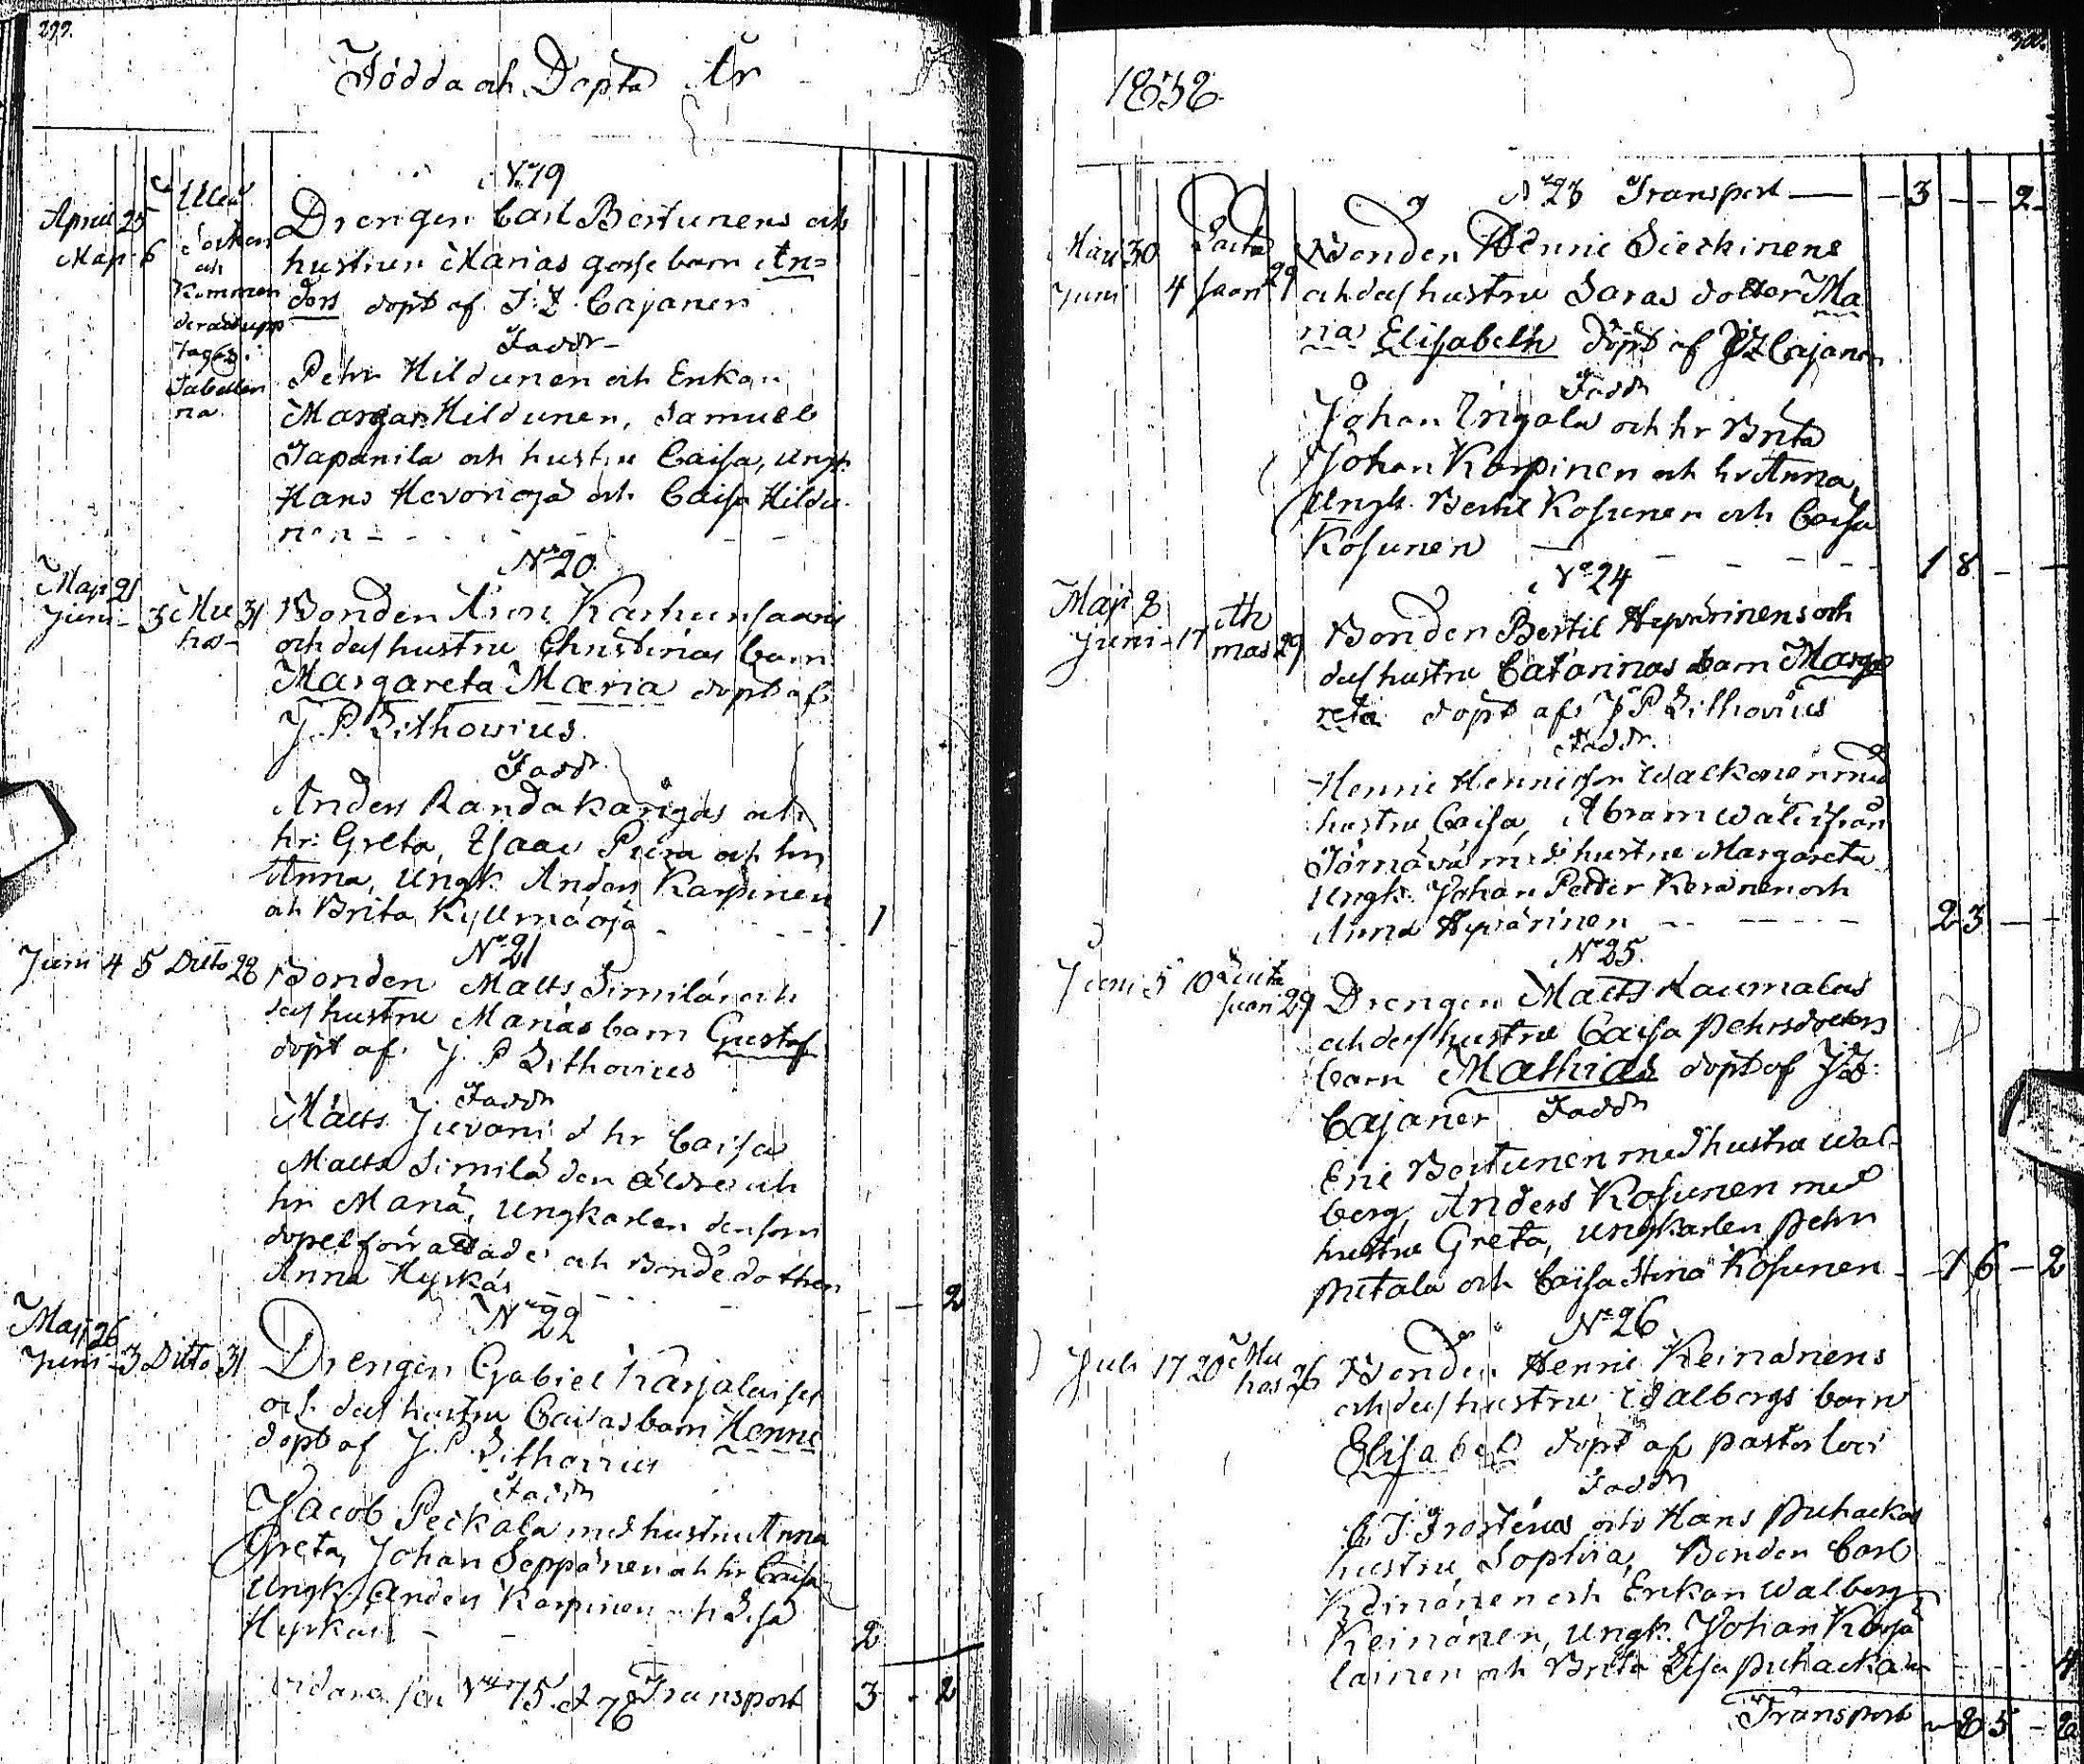 299.
Födda och Döpta År
N:o 19
April 25
Maji 6
Drengen Carl Bertunens och
hustrun Marias gossebarn An=
ders döpt af J. Z. Cajaner
Faddr
Pehr Hildunen och Enkan
Margar. Hildunen, Samuel
Tapanila och hustru Caisa, Ungk.
Hans Hevonoja och Caisa Hildu
nen
N:o 20
Maji 21
Juni 3 Mu 31
hos
Bonden Karhunsaaris
och dess hustru Christinas barn
Margareta Maria döpt af
J. P. Lithovius
Faddr
Anders Kandakangas och
hr: Greta, Isaac Pura och hr
Anna, Ungk. Anders Karpinen
och Brita Kyllmäojä 1
N:o 21
Juni 4 5 Ditto 28
Bonden Matts Similäs och
dess hustru Marias barn Gustaf
döpt af J. P. Lithovius
Faddr
Matts Juvani & hr Caisa
Matts Similä den äldre och
hr Maria, Ungkarlen densom
dopet förrättade och Bondedottren
Anna Hyrkäs 2
N:o 22
Maji 26
Juni 3 Ditto 31
Drengen Gabriel Karjalaises
och dess hustru Caisas barn Henric
döpt af J. P. Lithovius
Faddr
Jacob Peckala med hustru Anna
Greta, Johan Seppänen och hr Caisa
Ungk. Anders Karpinen och Lisa
Hyrkäs 2
vidare se N:o 75 & 76 Transport 3 - 2
1838
N:o 23 Transport 3 - - 2
Maji 30
Juni 4 29
Bonden Henric Sieckinens
och dess hustru Saras dotter Ma
ria Elisabeth döpt af J Z Cajaner
Faddr
Johan Irigala och hr Brita
Johan Karpinen och hr Anna,
Ungk. Bertil Kosunen och Caisa
Kosunen 1 8
N:o 24
Maji 8
Juni 17 29
Bonden Bertil Hyvärinens och
dess hustru Catarinas barn Marga
reta döpt af J P Lithovius
Faddr.
Henric Henricsson Walkonen med
hustru Caisa, Abram från
Törmävä med hustru Margareta
Ungk. Johan Petter Keränen och
Anna Hyvärinen 2 3
N:o 25.
Juni 5 10 29
Drengen Matts Kaumalas
och dess hustru Caisa Pehrsdotters
barn Mathias döpt af J Z
Cajaner Faddr
Eric Bertunen med hustru Wal-
berg, Anders Kosunen med
hustru Greta, Ungkarlen Pehr
Pietala och Caisa Stina Kosunen 1 6 - 2
N:o 26
Juli 17 20 Mu
hos 26
Bonden Henric Keinänens
och dess hustru Walbergs barn
Elisabet döpt af Pastor loci
Faddr
C. J. Frosterus och Hans Puhackas
hustru Sophia, Bonden Carl
Keinänen och Enkan Walberg
Keinänen, Ungk. Johan Karja
lainen och Brita Lisa Puhacka 4
Transport 8 5 - 8